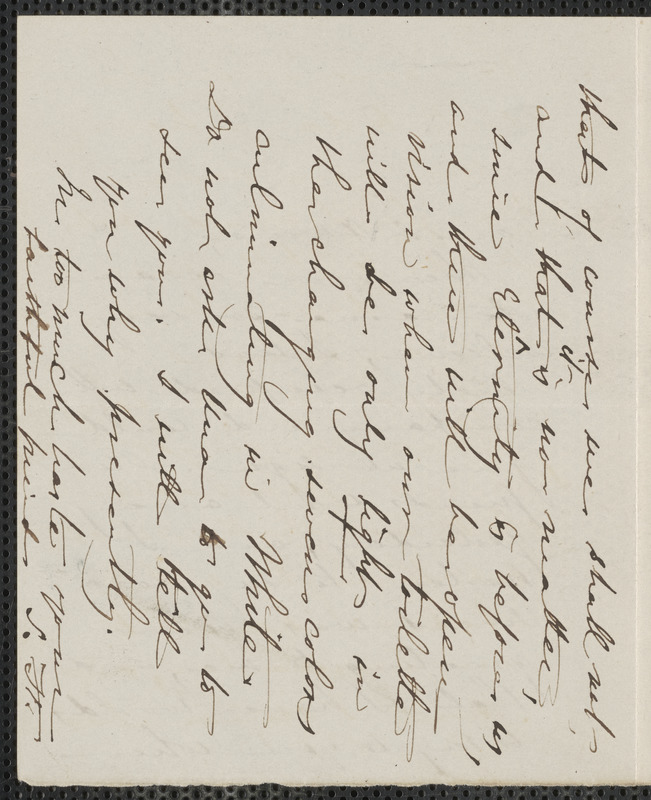 that of course we shall not,
and that is no matter,
since Eternity is before us
and there will be open
vision when our toilette
will be only light, in
the changing seven colors
culminating in White.
Do not ask Una to go to
see you. I will tell
you why presently.
In too much haste your
faithful friend S. H.